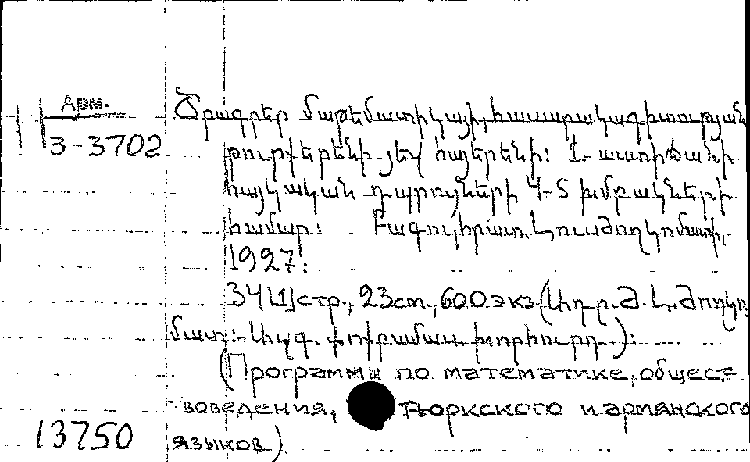 Арм.
3-3702
Ծրագրեր մաթեմատիկայի, հասարակագիտության
թուրքերենի յեվ հայերենի: 1- աստիճանի
հայկական դպրոցների 4-5 խմբակների
համար: Բագու, Լուսժողկոմատ,
1927:
34[1]стр., 23см., 600 экз (Ադր. Ժ. Լ. Ժողկո
մատ:- խորհուրդ.):
(Программы по математике, общест-
воведения, тюркского и армянского
13750 языков)